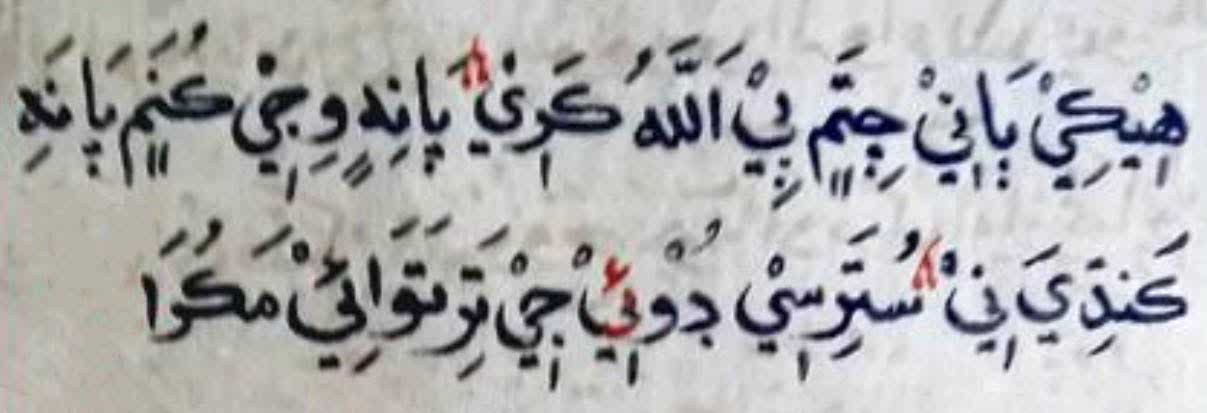 هِيْكِيْ بَانِيْ جِتَمِ بِيْ اَللَّهُ كَرِيْ پَانِهٍ وِجِيْ كُنَمِ پَانَهِ
كَندِيَ اِنِيْ سُتَرِسِيْ دُوْئِيْ جِيْ تَرِتَوَائِيْ مَكُرَا